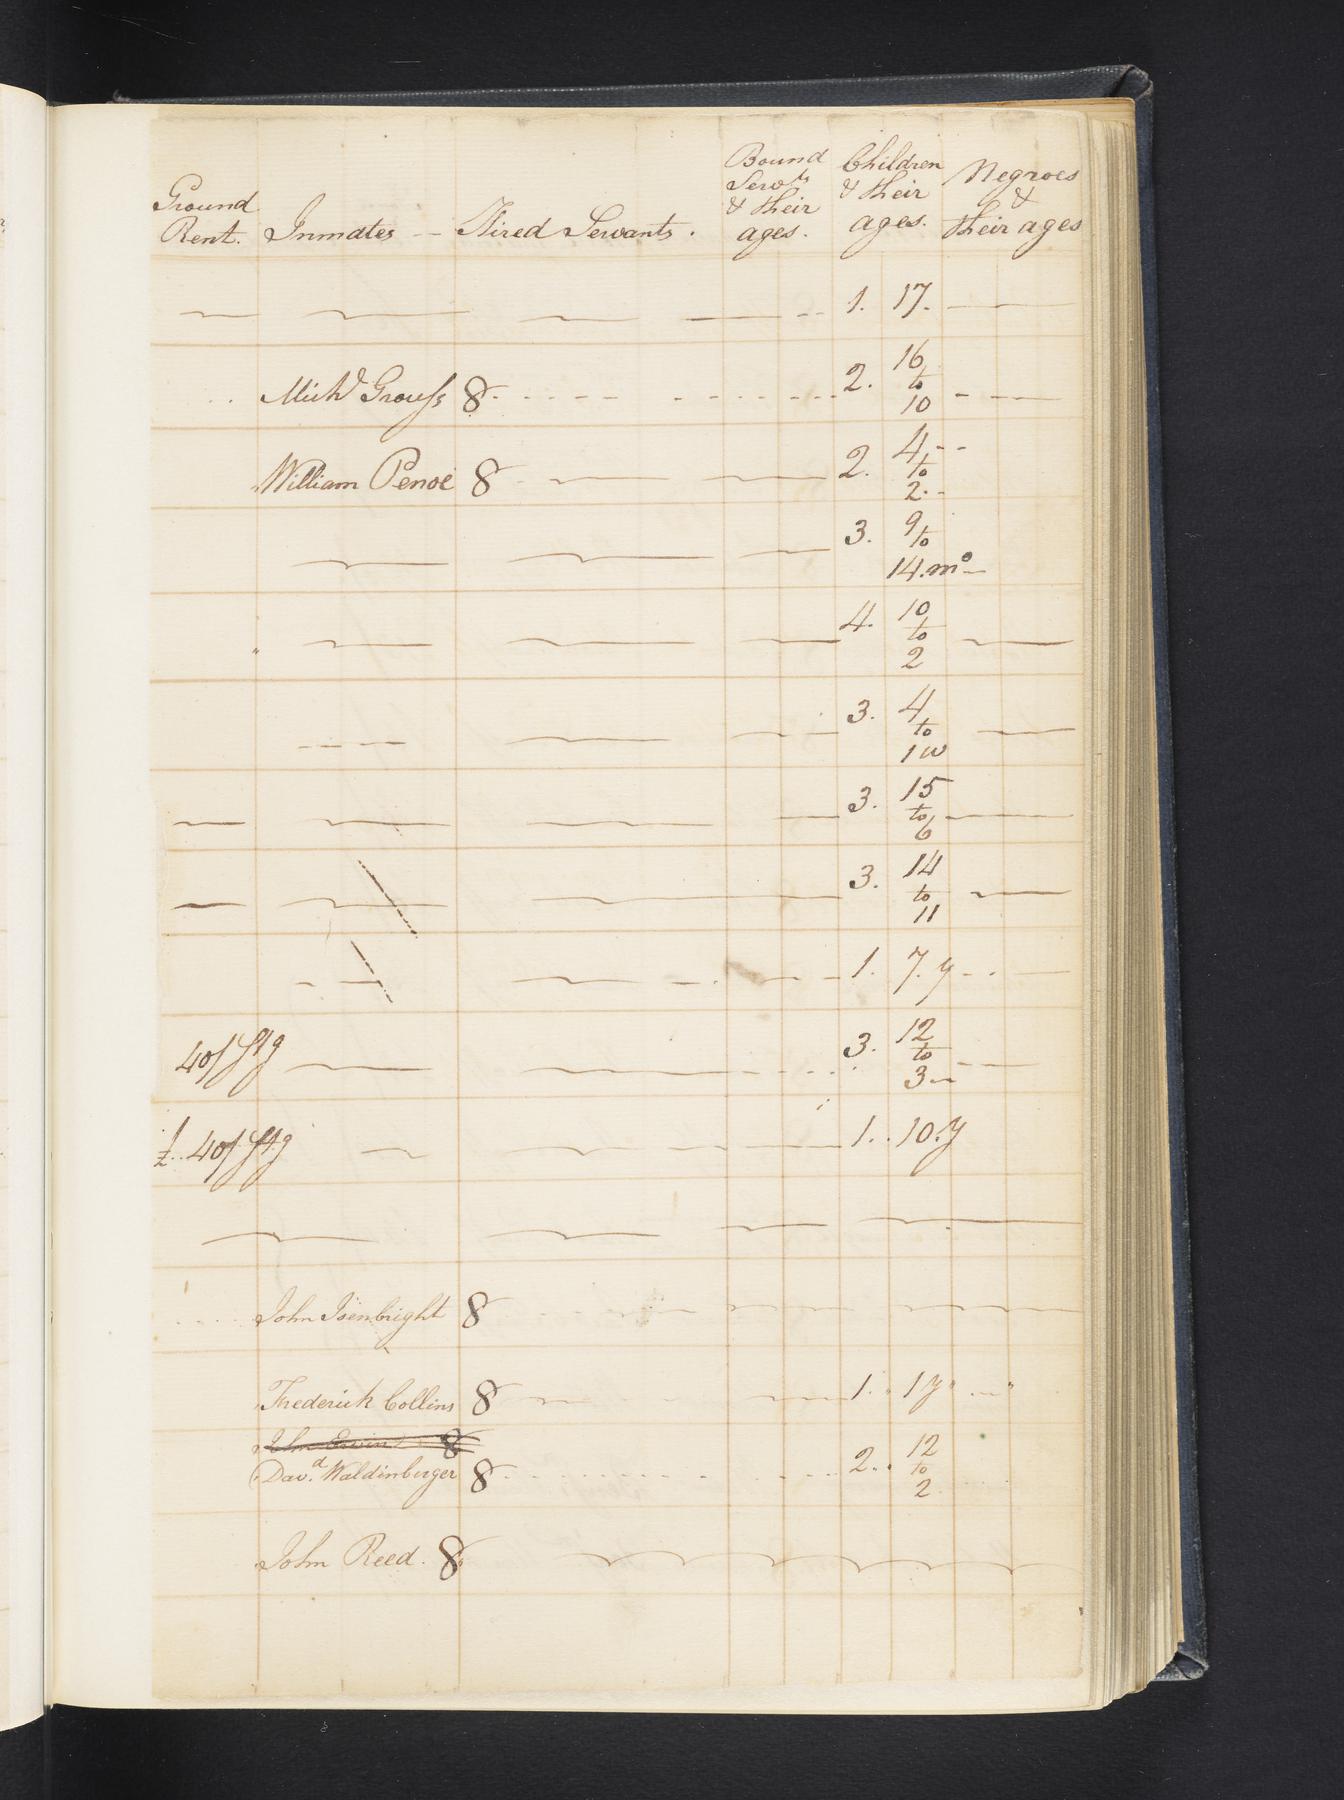 Ground Rent. Inmates -- Hired Servants. Bound Servts & their ages. Children & their ages. Negroes & their ages
1. 17.
Michl 8 2. 16 to 10
William Penoe 8 2. 4 to 2
3. 9 to 14. mo
4. 10 to 2
3. 4 to 1 w
3. 15 to 6
3. 14 to 11
1. 7. y
40/ Stg 3. 12 to 3
£. 40/ Stg 1. 10. y
John Isenbright 8
Frederick Collins 8 1. 1 y
8
Davd. Waldinberger 8 2. 12 to 2
John Reed. 8